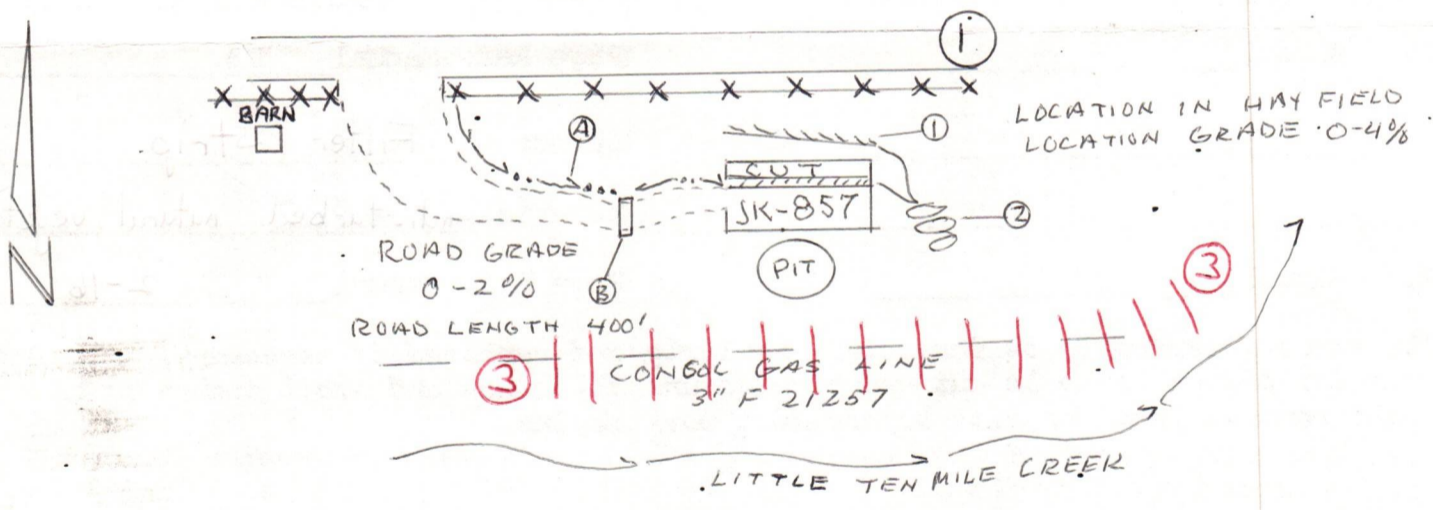 1
BARN
A
1
LOCATION IN HAY FIELD
LOCATION GRADE 0-4%
CUT
JK-857
2
ROAD GRADE
0-2%
B
PIT
3
ROAD LENGTH 400'
3
CONSOL GAS LINE
3" F 21257
LITTLE TEN MILE CREEK
N
Filter Strip.